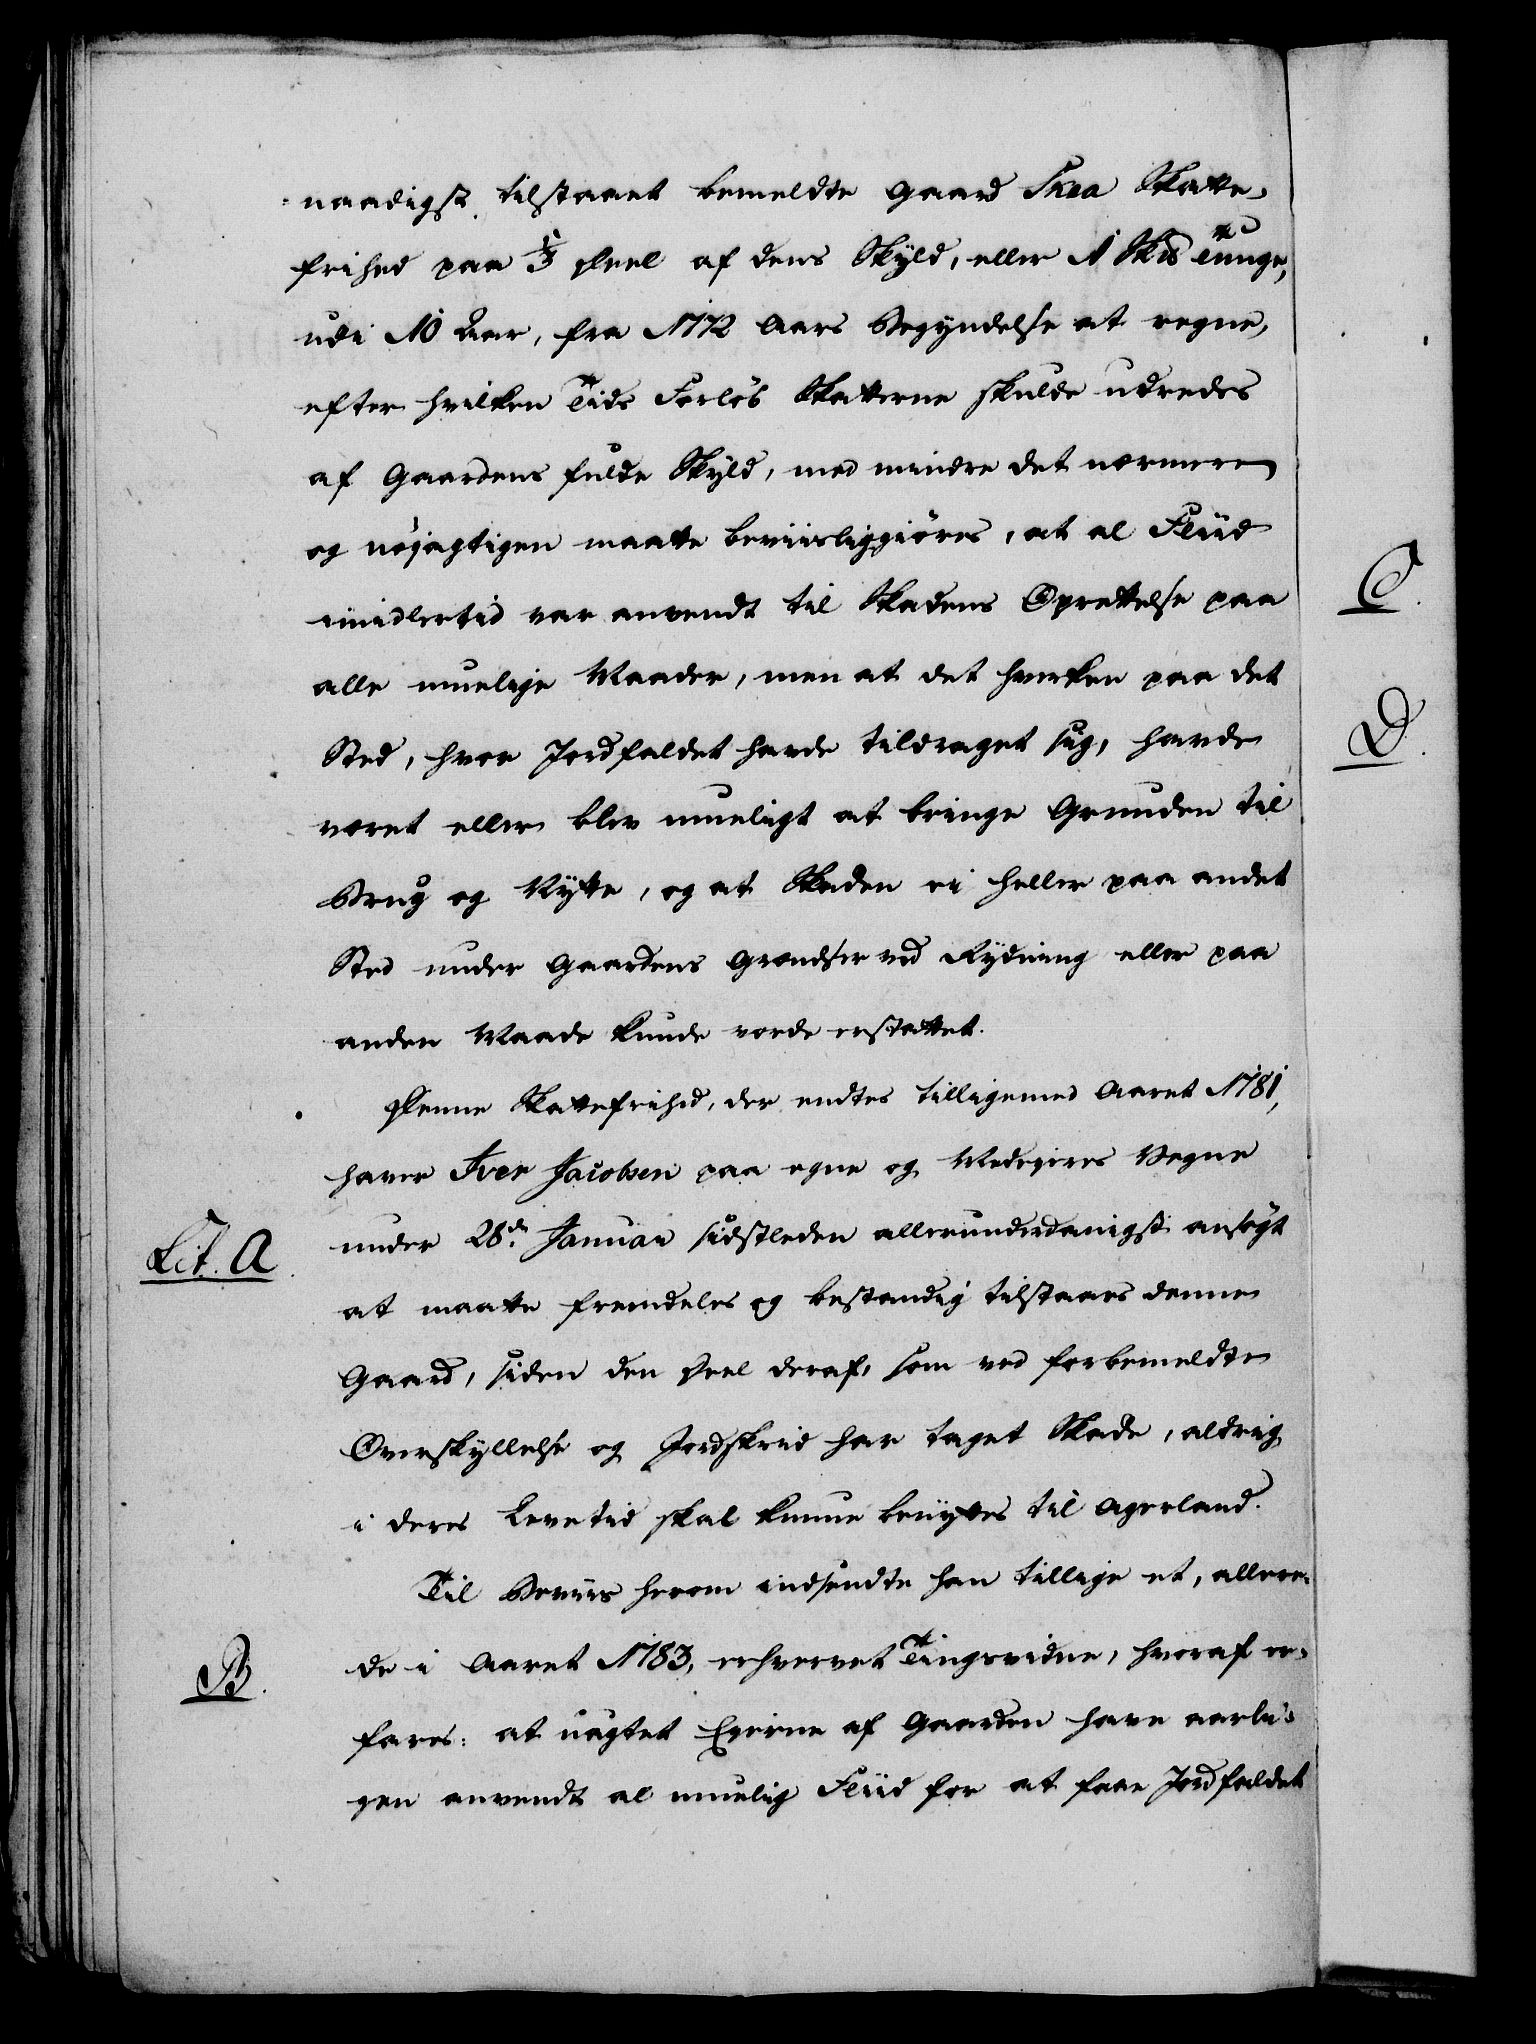 naadigst tilstaaet bemeldte Gaard Skea Skatte-
frihed paa 1/3 Deel af dens Skyld, eller 1 Skd Tunge,
udi 10 Aar, fra 1772 Aars Begyndelse at regne,
efter hvilken Tids Forløb Skatterne skulde udredes
af Gaardens fulde Skyld, med mindre det nærmere
og nøjagtigen maatte beviisliggiøres, at al Fliid
imidlertid var anvendt til Skadens Oprettelse paa
alle muelige Maader, men at det hverken paa det
Sted, hvor Jordfaldet havde tildraget sig, havde
været eller blev mueligt at bringe Grunden til
Brug og Nytte, og at Skaden ei heller paa andet
Sted under Gaardens Grændser ved Rydning eller paa
anden Maade kunde vorde erstattet.
Denne Skattefrihed, der endtes tilligemed Aaret 1781,
haver Iver Jacobsen paa egne og Medeieres Vegne
Lit. A. under 28de Januar sidstleden allerunderdanigst ansøgt
at maatte fremdeles og bestandig tilstaaes denne
Gaard, siden den Deel deraf, som ved forbemeldte
Overskyllelse og Jordskred har taget Skade, aldrig
i deres Levetid skal kunne benyttes til Agerland.
Til Beviis herom indsendte han tillige et, allere-
B. de i Aaret 1783, erhvervet Tingsvidne, hvoraf er-
fares: at uagtet Eierne af Gaarden have aarli-
gen anvendt al muelig Fliid for at faae Jordfaldet
C.
D.